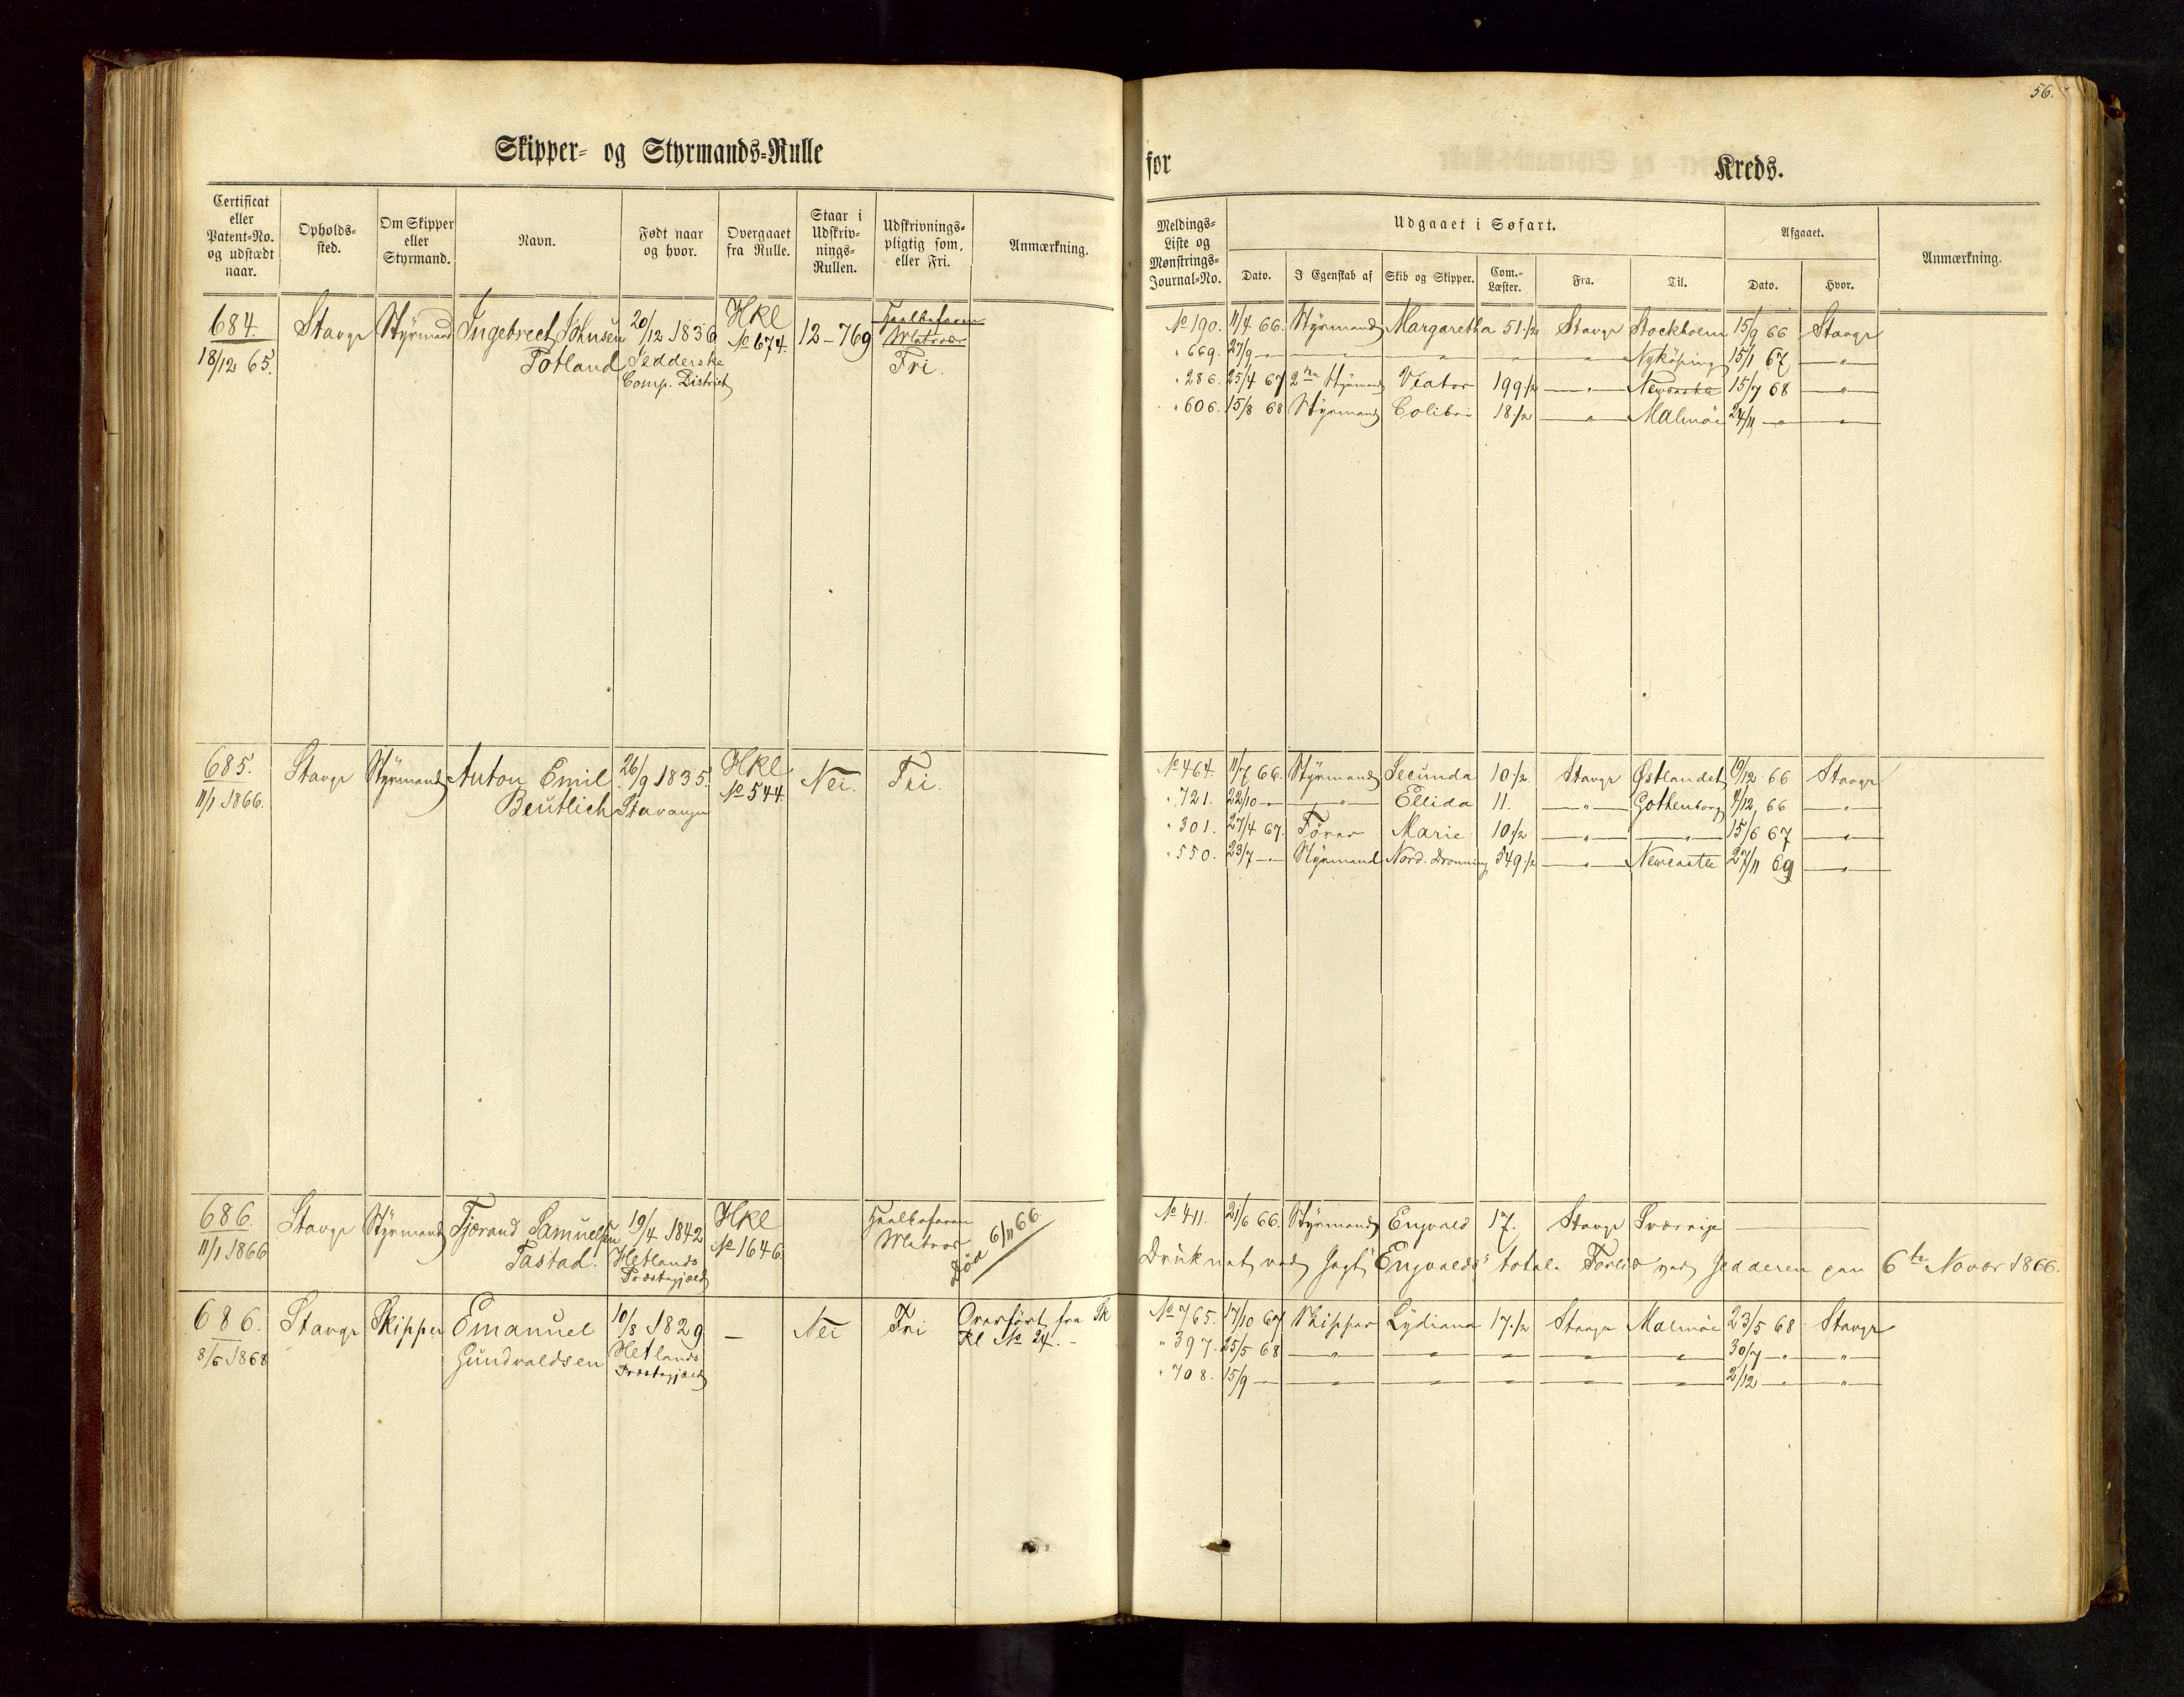 56.
Skipper- og Styrmands-Rulle
for Kreds.
Certificat eller Patent-No. og udstædt naar.
Opholds-sted.
Om Skipper eller Styrmand.
Navn.
Født naar og hvor.
Overgaaet fra Rulle.
Staar i Udskriv-nings-Rullen.
Udskrivnings-pligtig som, eller Fri.
Anmærkning.
Meldings-Liste og Mønstrings-Journal-No.
Udgaaet i Søfart.
Dato.
I Egenskab af
Skib og Skipper.
Com.-Læster.
Fra.
Til.
Afgaaet.
Dato.
Hvor.
Anmærkning.
684. Stavgr Styrmand Ingebrect Johnsen 20/12 1836 Hkl 12-769 Heelbefaren
18/12 65. Totland Jedderske No 674. Matros
Comp. District Fri.
No 190. 11/4 66. Styrmand Margaretha 51.½ Stavgr Stockholm 15/9 66 Stavgr
" 669. 27/9 — — " " — " — Nyköping 15/1 67 — " —
" 286. 25/4 67 2den Styrmand Viator 199.½ — " — Newcastle 15/7 68 — " —
" 606. 15/8 68 Styrmand Colibri 18.½ — " — Malmöe 24/11 — " — — " —
685. Stavgr Styrmand Anton Emil 26/9 1835. Hkl Nei. Fri.
11/1 1866. Beutlich Stavanger No 544.
No 464. 11/7 66. Styrmand Secunda 10.½ Stavgr Østlandet 9/12 66 Stavgr
" 721. 22/10 — — " — Ellida 11. — " — Gothenborg 9/12 66 — " —
" 301. 27/4 67. Fører Marie 10.½ — " — — " — 15/6 67 — " —
" 550. 23/7 — Styrmand Nord. Dronning 549.½ — " — Newcastle 27/11 69 — " —
686. Stavgr Styrmand Tjerand Samuelsen 19/4 1842 Hkl Heelbefaren
11/1 1866 Tastad. Hetlands No 1646 Matros
Præstegjæld Død 6/11 66
No 411. 21/6 66. Styrmand Engvald 17. Stavgr Sverrige
Druknet ved Jagt "Engvalds" totale Forlis ved Jedderen den 6te Novbr 1866.
686. Stavgr Skipper Emanuel 10/8 1829 — Nei Fri Overført fra Sk
8/6 1868 Gundvaldsen Hetlands Kl No 24. -
Præstegjæld
No 765. 17/10 67 Skipper Lydiana 17.½ Stavgr Malmöe 23/5 68 Stavgr
" 397. 25/5 68 — " — — " — — " — — " — — " — 30/7 — " — "
" 708. 15/9 — — " — — " — — " — — " — — " — 2/12 — " — "